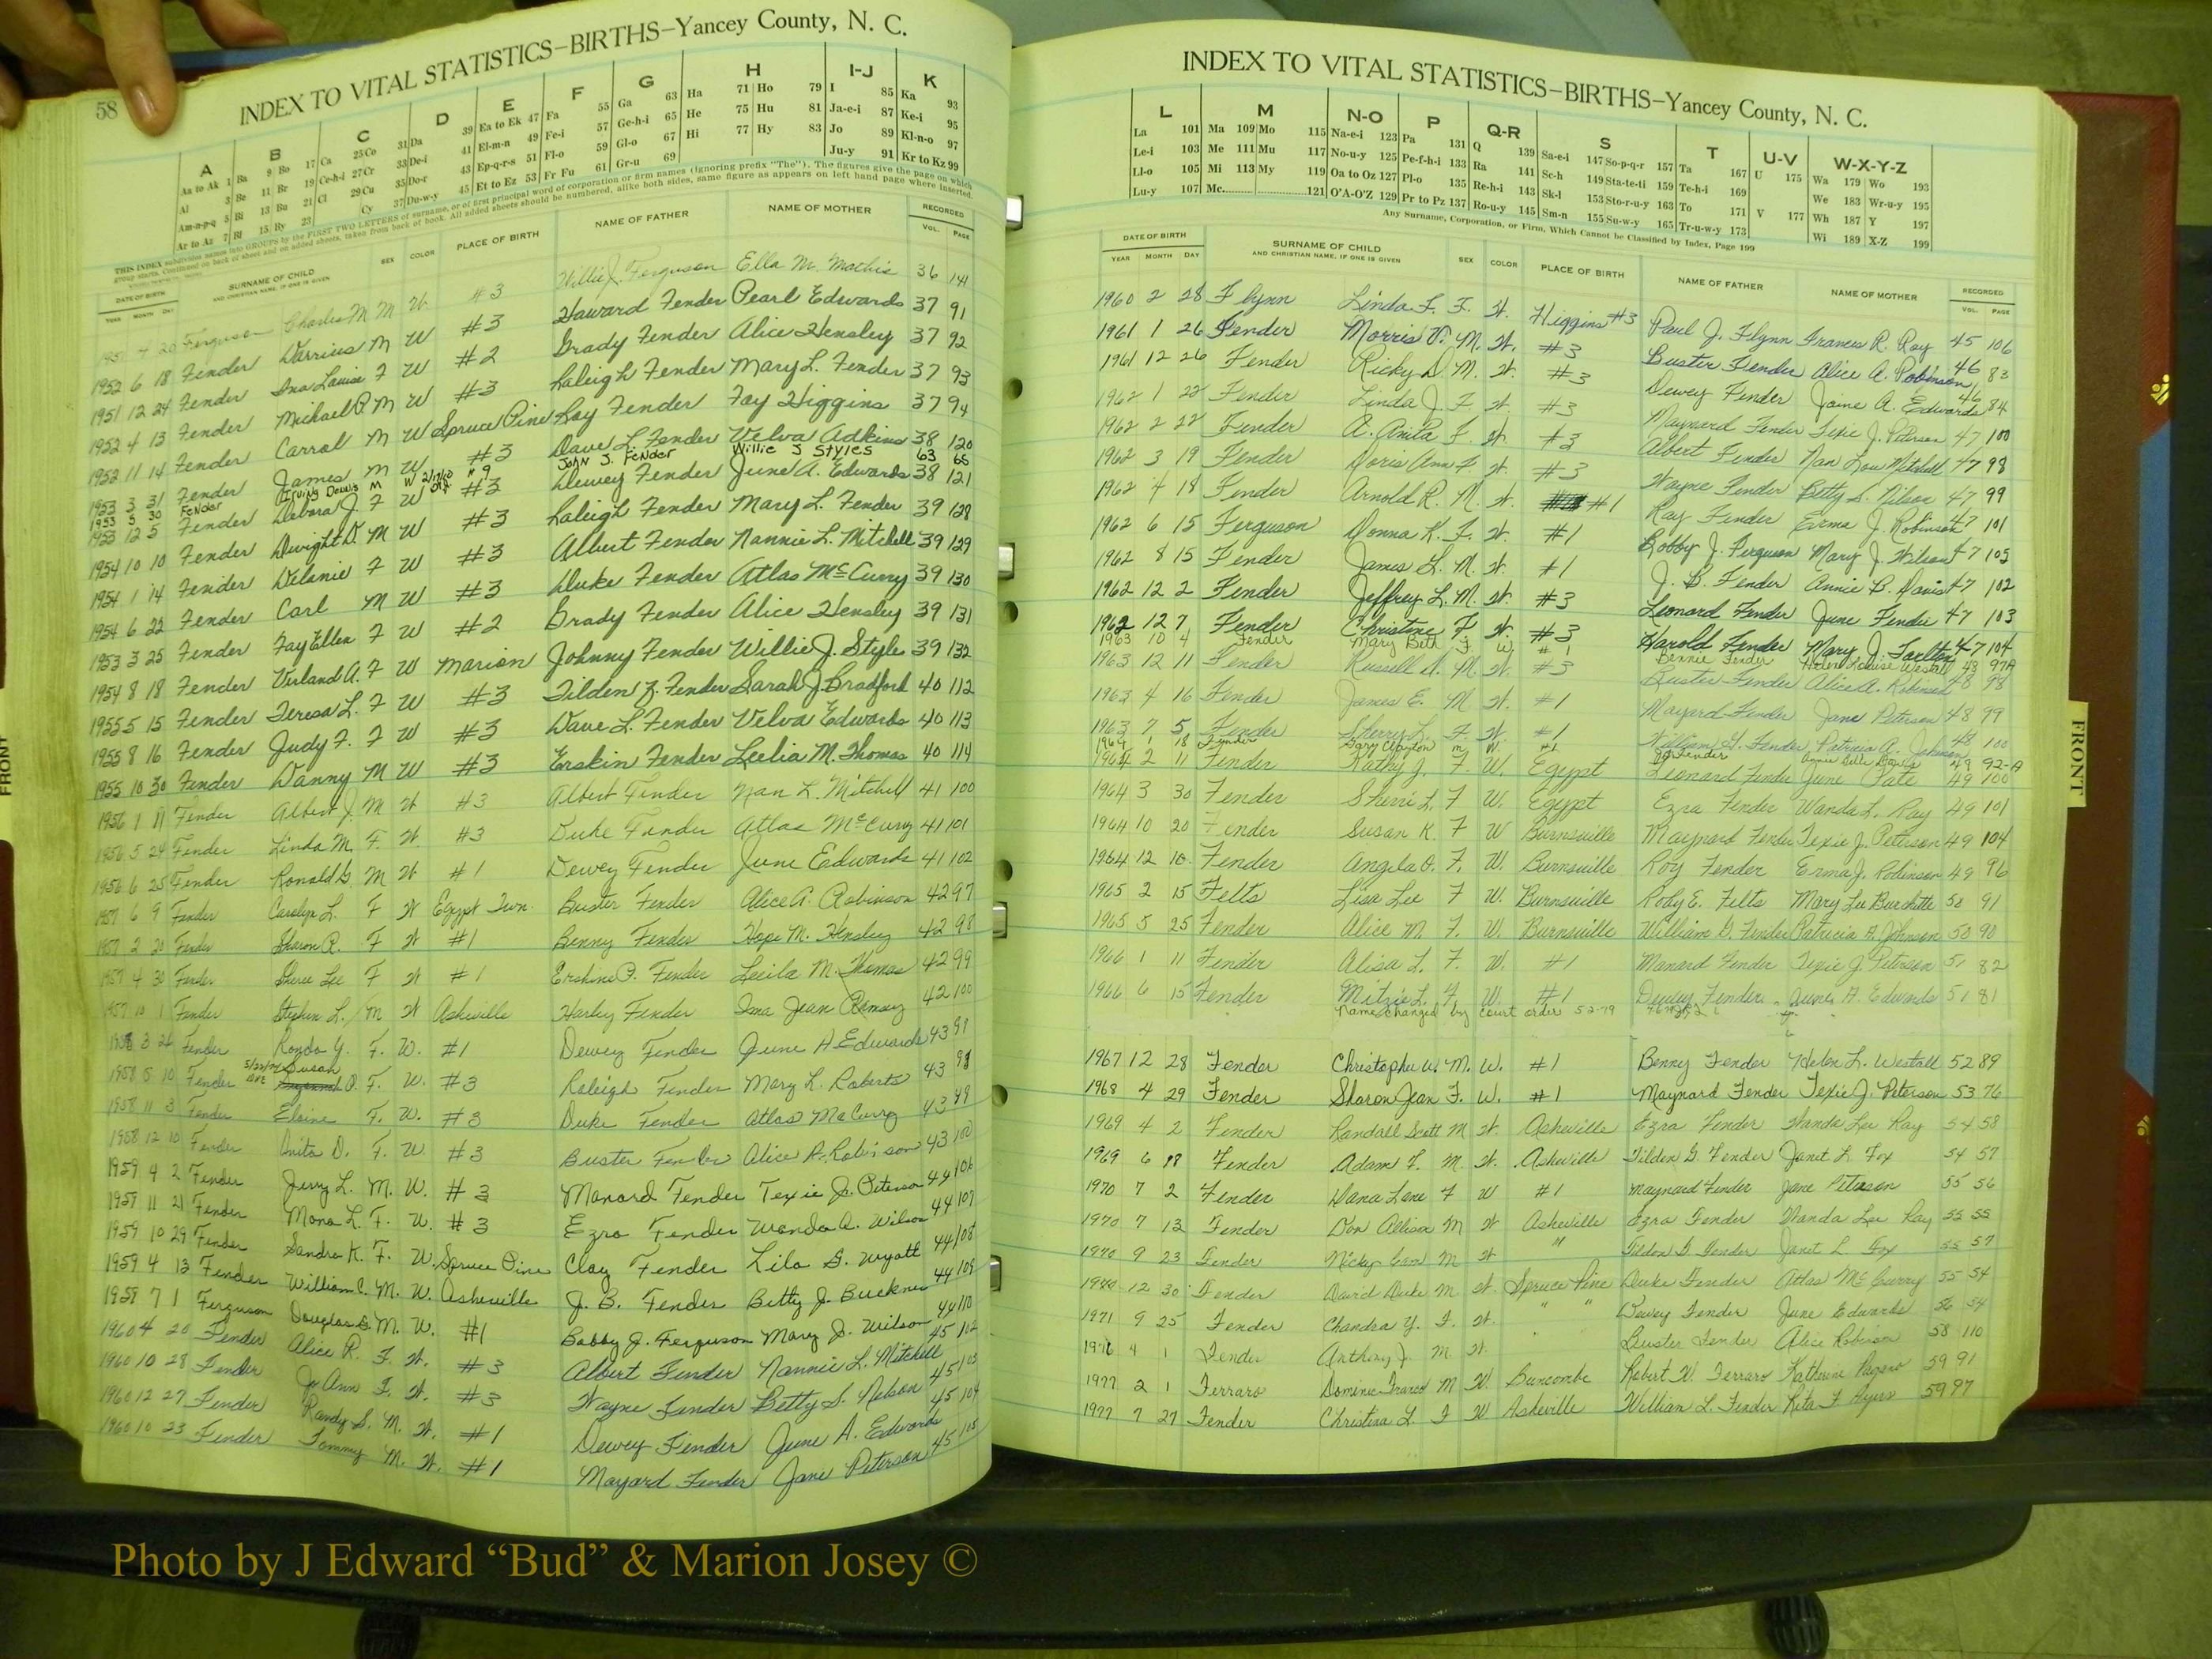 58
INDEX TO VITAL STATISTICS–BIRTHS–Yancey County, N. C.
A B C D E F G H I-J K
Aa to Ak 1 Ba 9 Bo 17 Ca 25 Co 31 Da 39 Ea to Ek 47 Fa 55 Ga 63 Ha 71 Ho 79 I 85 Ka 93
Al 3 Be 11 Br 19 Ce-h-i 27 Cr 33 De-i 41 El-m-n 49 Fe-i 57 Ge-h-i 65 He 75 Hu 81 Ja-e-i 87 Ke-i 95
Am-n-p-q 5 Bi 13 Bu 21 Cl 29 Cu 35 Do-r 43 Ep-q-r-s 51 Fl-o 59 Gl-o 67 Hi 77 Hy 83 Jo 89 Kl-n-o 97
Ar to Az 7 Bl 15 By 23 Cy 37 Du-w-y 45 Et to Ez 53 Fr Fu 61 Gr-u 69 Ju-y 91 Kr to Kz 99
THIS INDEX subdivides names into GROUPS by the FIRST TWO LETTERS of surname, or of first principal word of corporation or firm names (ignoring prefix "The"). The figures give the page on which
group starts. Continued on back of sheet and on added sheets, taken from back of book. All added sheets should be numbered, alike both sides, same figure as appears on left hand page where inserted.
DATE OF BIRTH SURNAME OF CHILD SEX COLOR PLACE OF BIRTH NAME OF FATHER NAME OF MOTHER RECORDED
YEAR MONTH DAY AND CHRISTIAN NAME, IF ONE IS GIVEN VOL. PAGE
4 20 Ferguson Charles M M W #3 Willie J. Ferguson Ella M. Mathis 36 141
1952 6 18 Fender Darrius M W #3 Howard Fender Pearl Edwards 37 91
1951 12 24 Fender Ina Louise F W #2 Grady Fender Alice Hensley 37 92
1952 4 13 Fender Michael P. M W #3 Raleigh Fender Mary L. Fender 37 93
1952 11 14 Fender Carrol M W Spruce Pine Roy Fender Fay Higgins 37 94
1953 3 31 Fender James M W #3 Dave L. Fender Velva Adkins 38 120
1953 5 30 Fender Irving Dennis M W #9 John J. Fender Willie J Styles 63 65
1953 12 5 Fender Debora J. F W #3 Dewey Fender June A. Edwards 38 121
1954 10 10 Fender Dwight D. M W #3 Raleigh Fender Mary L. Fender 39 128
1954 1 14 Fender Delanie F W #3 Albert Fender Nannie L. Mitchell 39 129
1954 6 22 Fender Carl M W #3 Duke Fender Atlas McCurry 39 130
1953 3 25 Fender Fay Ellen F W #2 Grady Fender Alice Hensley 39 131
1954 8 18 Fender Verland A. F W Marion Johnny Fender Willie J. Style 39 132
1955 5 15 Fender Teresa L. F W #3 Tilden Z. Fender Sarah J. Bradford 40 112
1955 8 16 Fender Judy F. F W #3 Dave L. Fender Velva Edwards 40 113
1955 10 30 Fender Danny M W #3 Erskin Fender Leelia M. Thomas 40 114
1956 1 11 Fender Albert J. M W #3 Albert Fender Nan L. Mitchell 41 100
1956 5 24 Fender Linda M. F. W. #3 Duke Fender Atlas McCurry 41 101
1956 6 25 Fender Ronald G. M W #1 Dewey Fender June Edwards 41 102
1957 6 9 Fender Carolyn L. F W Egypt Twn. Buster Fender Alice A. Robinson 42 97
1957 2 20 Fender Sharon R. F W #1 Benny Fender Hope M. Hensley 42 98
1957 4 30 Fender Sheree Lee F W #1 Erskine P. Fender Lecila M. Thomas 42 99
1957 10 1 Fender Stephen L. M W Asheville Harley Fender Ima Jean Ramsey 42 100
1958 3 26 Fender Ronda Y. F. W. #1 Dewey Fender June A Edwards 43 97
1958 5 10 Fender Susan D. F. W. #3 Raleigh Fender Mary L. Roberts 43 98
1958 11 3 Fender Elaine F. W. #3 Duke Fender Atlas McCurry 43 99
1958 12 10 Fender Anita D. F. W. #3 Buster Fender Alice A. Robinson 43 100
1959 4 2 Fender Jerry L. M. W. #3 Manard Fender Texie J. Peterson 44 106
1959 11 21 Fender Mona L. F. W. #3 Ezra Fender Wanda A. Wilson 44 107
1959 10 29 Fender Sandra K. F. W. Spruce Pine Clay Fender Lila G. Wyatt 44 108
1959 4 13 Fender William C. M. W. Asheville J. B. Fender Betty J. Buckner 44 109
1959 7 1 Ferguson Douglas G. M. W. #1 Bobby J. Ferguson Mary J. Wilson 44 110
1960 4 20 Fender Alice R. F. W. #3 Albert Fender Nannie L. Mitchell 45 102
1960 10 28 Fender Jo Ann F. W. #3 Wayne Fender Betty S. Nelson 45 103
1960 12 27 Fender Randy S. M. W. #1 Dewey Fender June A. Edwards 45 104
1960 10 23 Fender Tommy M. W. #1 Mayard Fender Jane Peterson 45 105
INDEX TO VITAL STATISTICS–BIRTHS–Yancey County, N. C.
L M N-O P Q-R S T U-V W-X-Y-Z
La 101 Ma 109 Mo 115 Na-e-i 123 Pa 131 Q 139 Sa-e-i 147 So-p-q-r 157 Ta 167 U 175 Wa 179 Wo 193
Le-i 103 Me 111 Mu 117 No-u-y 125 Pe-f-h-i 133 Ra 141 Sc-h 149 Sta-te-ti 159 Te-h-i 169 We 183 Wr-u-y 195
Ll-o 105 Mi 113 My 119 Oa to Oz 127 Pl-o 135 Re-h-i 143 Sk-l 153 Sto-r-u-y 163 To 171 V 177 Wh 187 Y 197
Lu-y 107 Mc 121 O'A-O'Z 129 Pr to Pz 137 Ro-u-y 145 Sm-n 155 Su-w-y 165 Tr-u-w-y 173 Wi 189 X-Z 199
Any Surname, Corporation, or Firm, Which Cannot be Classified by Index, Page 199
DATE OF BIRTH SURNAME OF CHILD SEX COLOR PLACE OF BIRTH NAME OF FATHER NAME OF MOTHER RECORDED
YEAR MONTH DAY AND CHRISTIAN NAME, IF ONE IS GIVEN VOL. PAGE
1960 2 28 Flynn Linda F. F. W. Higgins #3 Paul J. Flynn Frances R. Ray 45 106
1961 1 26 Fender Morris V. M. W. #3 Buster Fender Alice A. Robinson 46 83
1961 12 26 Fender Ricky D. M. W. #3 Dewey Fender June A. Edwards 46 84
1962 1 22 Fender Linda J. F. W. #3 Maynard Fender Texie J. Peterson 47 100
1962 2 22 Fender A. Anita F. W. #3 Albert Fender Nan Lou Mitchell 47 98
1962 3 19 Fender Doris Ann F. W. #3 Wayne Fender Betty S. Nilson 47 99
1962 4 18 Fender Arnold R. M. W. #1 Ray Fender Erma J. Robinson 47 101
1962 6 15 Ferguson Donna K. F. W. #1 Bobby J. Ferguson Mary J. Wilson 47 105
1962 8 15 Fender James L. M. W. #1 J. B. Fender Annie B. Davis 47 102
1962 12 2 Fender Jeffrey L. M. W. #3 Leonard Fender June Fender 47 103
1962 12 7 Fender Christine F. W. #3 Harold Fender Mary J. 47 104
1963 10 4 Fender Mary Beth F. W. #1 Bennie Fender Helen Louise Westall 48 97A
1963 12 11 Fender Russell A. M. W. #3 Buster Fender Alice A. Robinson 48 98
1963 4 16 Fender James E. M. W. #1 Mayard Fender Jane Peterson 48 99
1963 7 5 Fender Sherry L. F. W. #1 William G. Fender Patricia A. Johnson 48 100
1964 1 18 Fender Gary Clayton M W. #1 JB Fender Annie Belle Davis 49 92-A
1964 2 11 Fender Kathy J. F. W. Egypt Leonard Fender June Pate 49 100
1964 3 30 Fender Sherri L. F W. Egypt Ezra Fender Wanda L. Ray 49 101
1964 10 20 Fender Susan K. F W Burnsville Maynard Fender Texie J. Peterson 49 104
1964 12 10 Fender Angela D. F. W. Burnsville Roy Fender Erma J. Robinson 49 96
1965 2 15 Felts Lisa Lee F W. Burnsville Roby E. Felts Mary Lee Burchette 50 91
1965 5 25 Fender Alice M. F. W. Burnsville William G. Fender Patricia A. Johnson 50 90
1966 1 11 Fender Alisa L. F. W. #1 Manard Fender Texie J. Peterson 51 82
1966 6 15 Fender Mitzie L. F W. #1 Dewey Fender June A. Edwards 51 81
Name changed by court order 52-79
1967 12 28 Fender Christopher W. M. W. #1 Benny Fender Helen L. Westall 52 89
1968 4 29 Fender Sharon Jean F. W. #1 Maynard Fender Texie J. Peterson 53 76
1969 4 2 Fender Randall Scott M W Asheville Ezra Fender Wanda Lee Ray 54 58
1969 6 18 Fender Adam T. M. W. Asheville Tilden G. Fender Janet L. Fox 54 57
1970 7 2 Fender Dana Lane F W #1 Maynard Fender Jane Peterson 55 56
1970 7 13 Fender Don Allison M W Asheville Ezra Fender Wanda Lee Ray 55 55
1970 9 23 Fender Nicky M W " Tilden G. Fender Janet L Fox 55 57
1970 12 30 Fender David Duke M W. Spruce Pine Duke Fender Atlas McCurry 55 54
1971 9 25 Fender Chandra Y. F. W. " " Dewey Fender June Edwards 56 54
4 1 Fender Anthony J. M. W. Buster Fender Alice Robinson 58 110
1977 2 1 Ferraro Dominic Franco M W. Buncombe Robert W. Ferraro Katherine 59 91
1977 7 27 Fender Christina L. F W Asheville William L. Fender Rita F. Ayers 59 97
FRONT
FRONT
Photo by J Edward “Bud” & Marion Josey ©